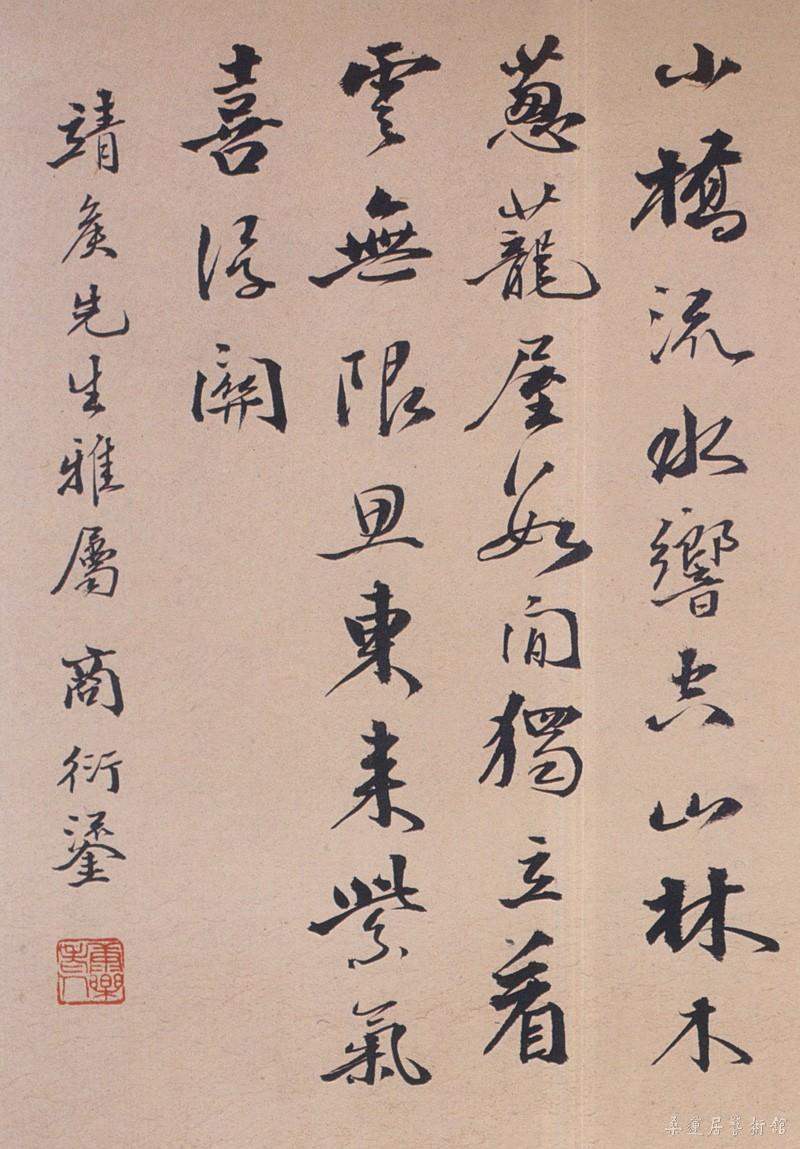 小橋流水響空山林木
蔥蘢屋數間獨立看
雲無限思東來紫氣
喜浮關
靖侯先生雅屬 商衍鎏
康樂老人
桑蓮居藝術館